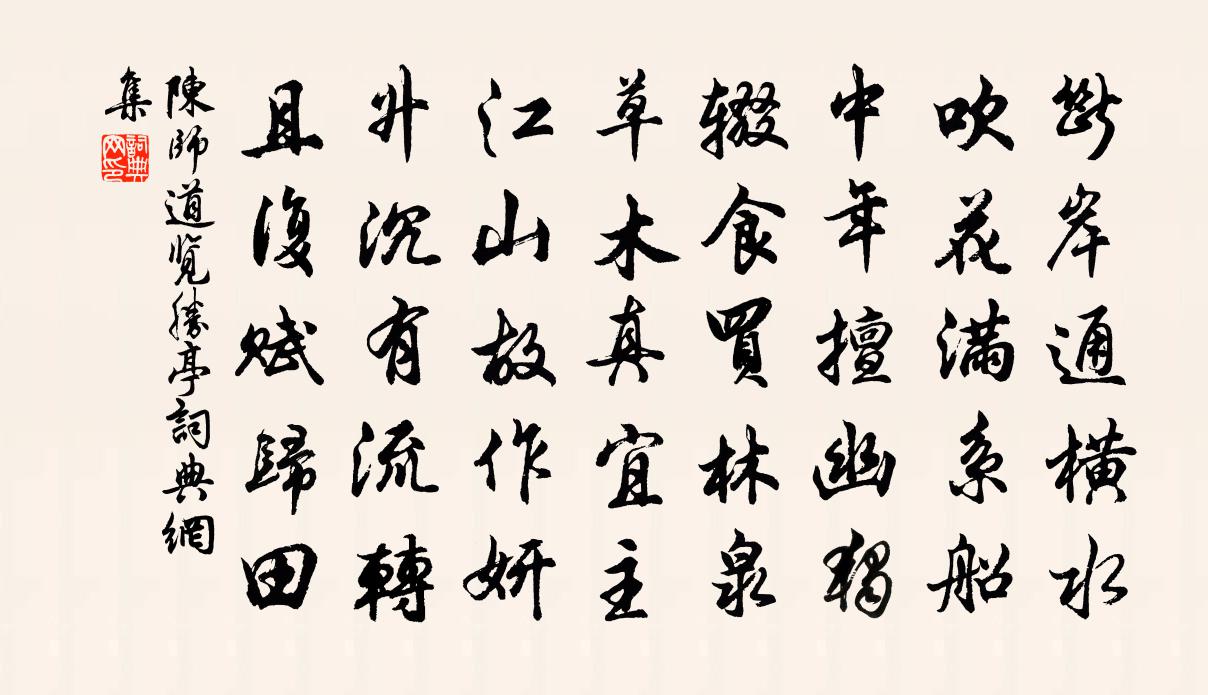 斷岸通橫水
吹花滿系船
中年擅幽獨
辍食買林泉
草木真宜主
江山故作妍
升沉有流轉
且復赋歸田
陳師道览勝亭詞典網
集
詞典
网印